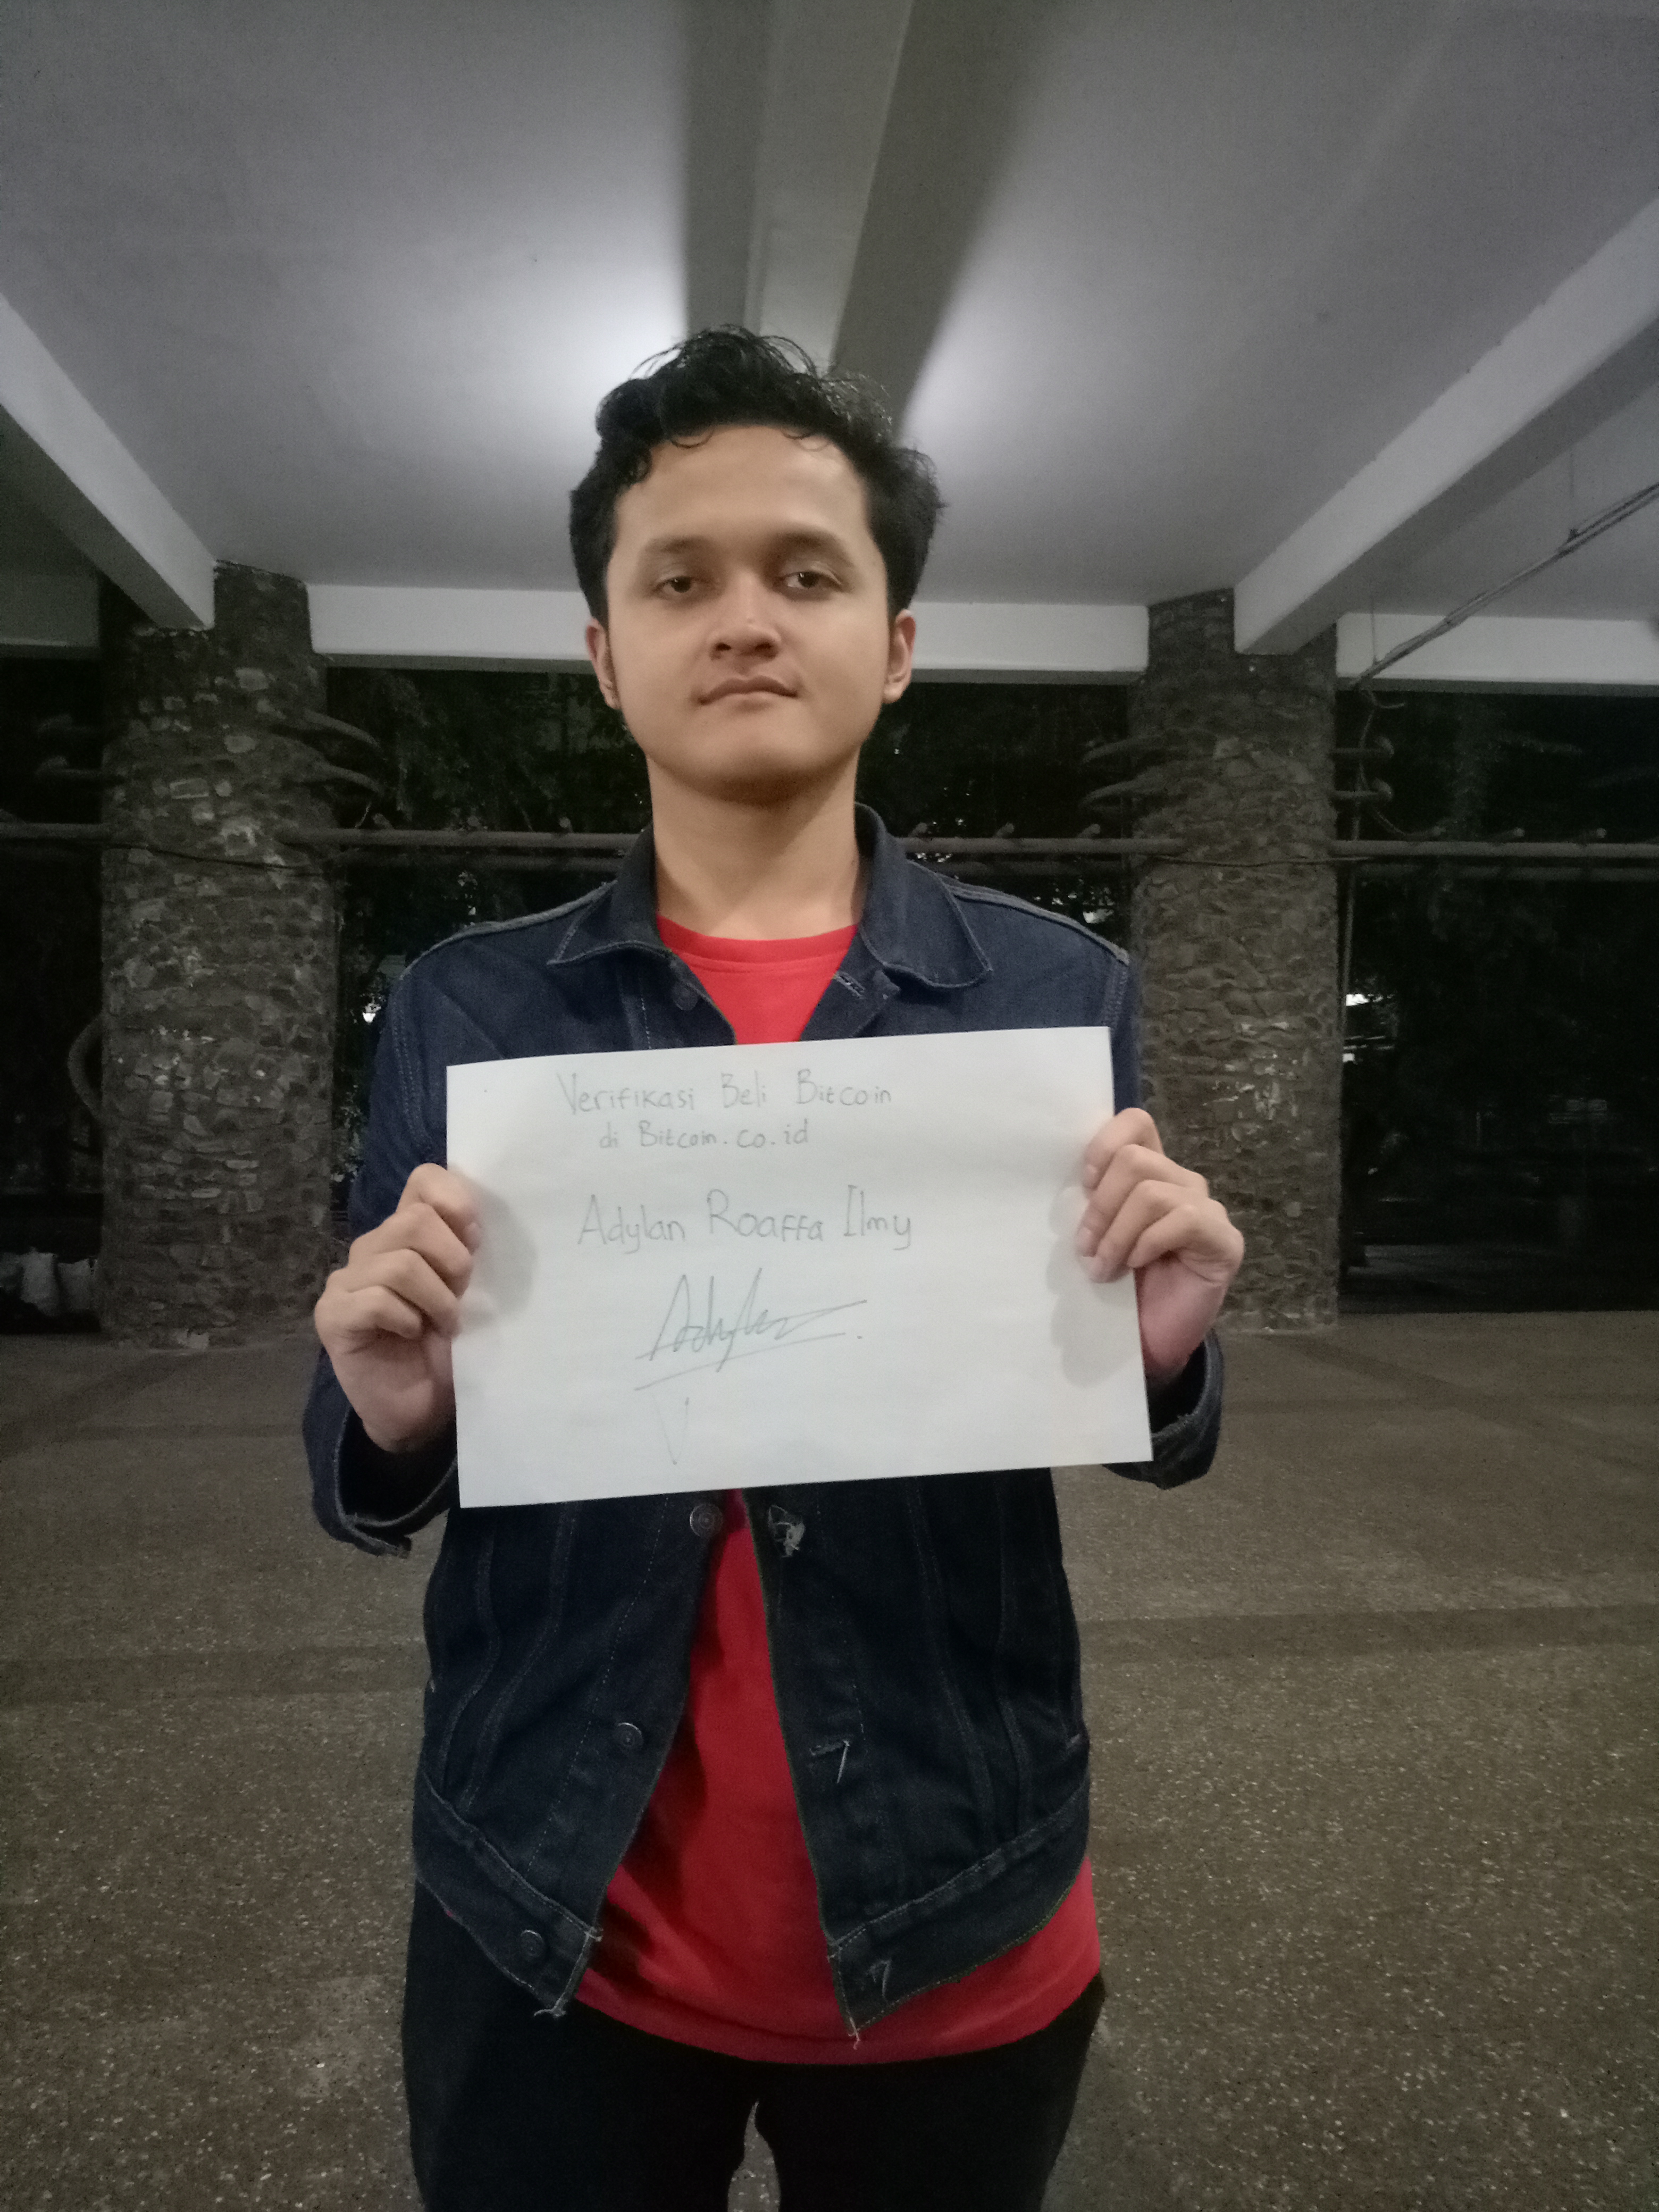 Verifikasi Beli Bitcoin
di Bitcoin.co.id
Adylan Roaffa Ilmy